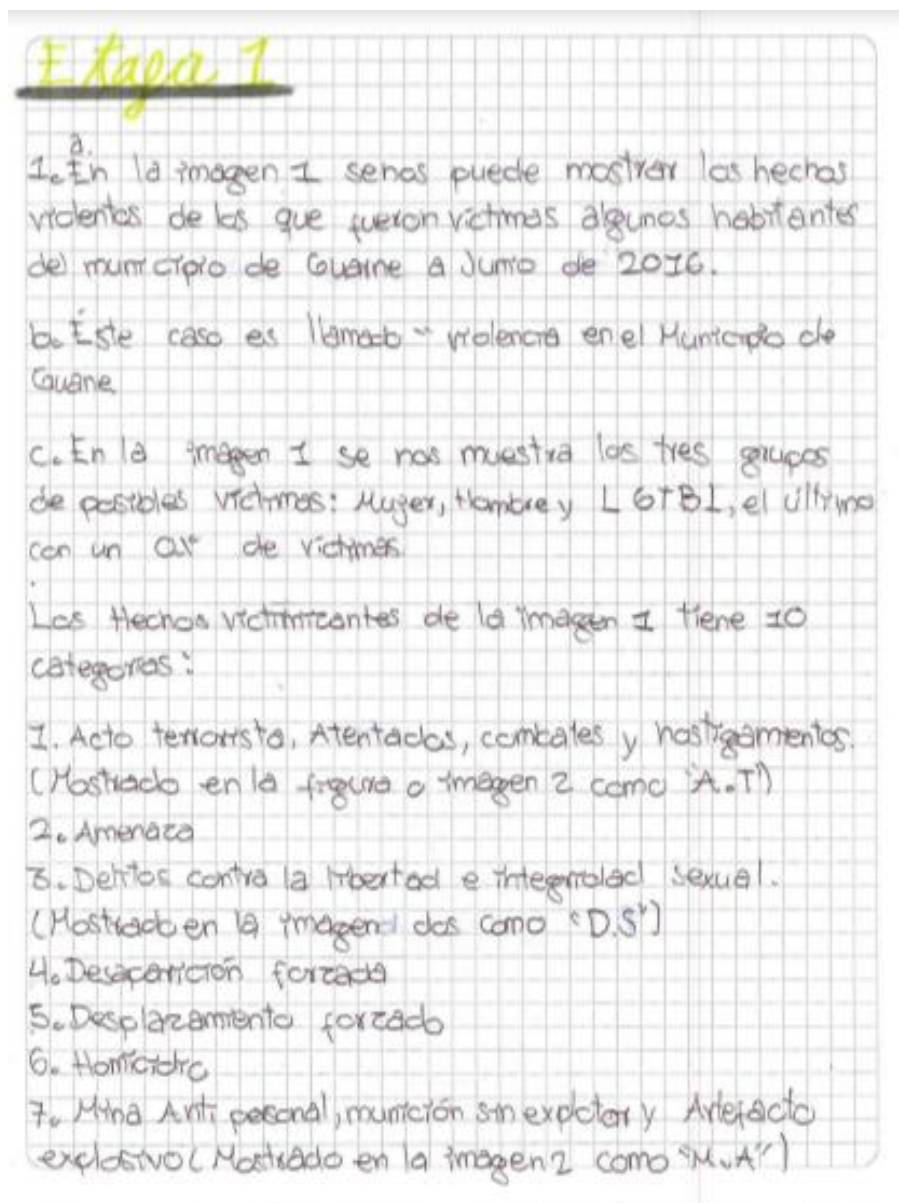 Etapa 1
a.
1. En la imagen 1 senos puede mostrar los hechos
violentos de los que fueron victimas algunos habitantes
del municipio de Guarne a Junio de 2016.
b. Éste caso es llamado "violencia en el Municipio de
Guane
c. En la imagen 1 se nos muestra los tres grupos
de posibles victimas: Mujer, Hombre y LGTBI, el último
con un de victimas
Los Hechos victimizantes de la imagen 1 tiene 10
categorias:
1. Acto terrorista, Atentados, combates y hostigamientos.
(Mostrado en la figura o imagen 2 como "A.T")
2. Amenaza
3. Delitos contra la libertad e integridad sexual.
(Mostrado en la imagen dos como "D.S")
4. Desaparición forzada
5. Desplazamiento forzado
6. Homicidio
7. Mina Anti pesonal, munición sin explotar y Artefacto
explosivo (Mostrado en la imagen 2 como "M.A")